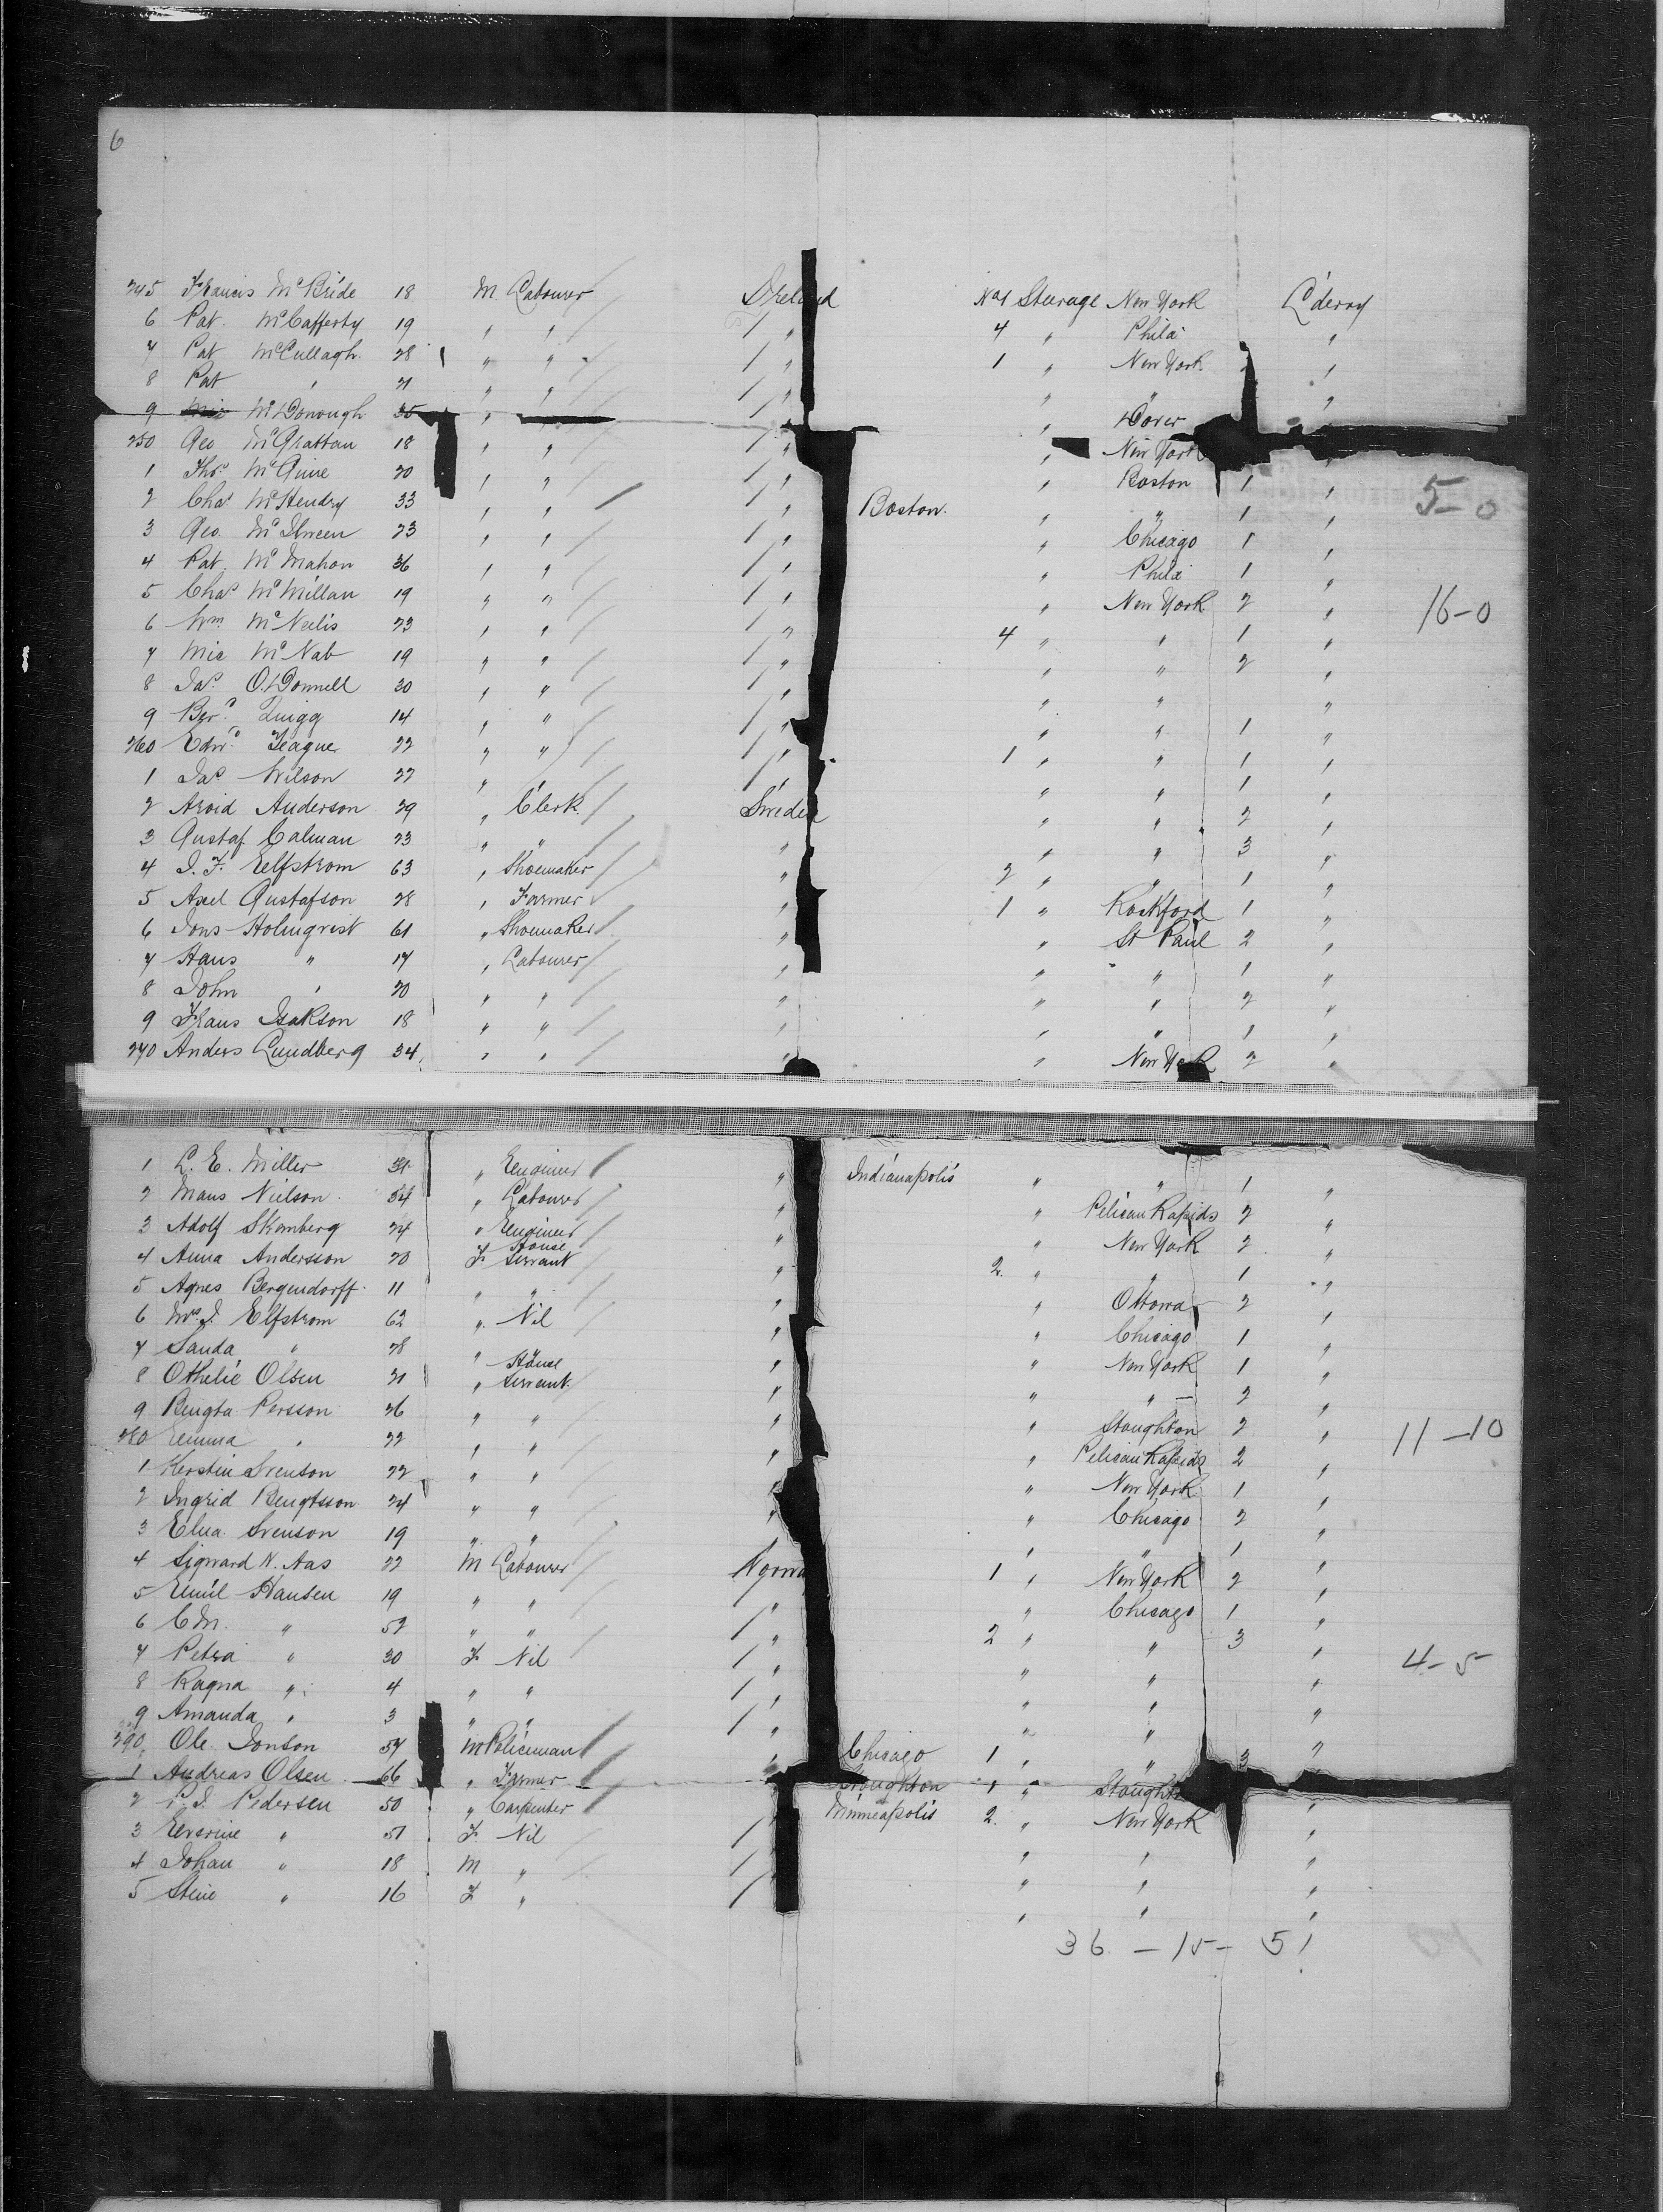 6
245 Francis McBride 18 M Labourer Ireland No1 Steerage New York L'derry
6 Pat. McCafferty 19 " " " 4 " Phila "
7 Pat McCullagh 28 " " " 1 " New York "
8 Pat " 21 " " " " " "
9 McDonough 35 " " " Dover
250 Geo McGrattan 18 " " " " New York "
1 Thos McGuire 20 " " " " Boston 1 "
2 Chas McHendry 33 " " " Boston. " " 1 " 5-0
3 Geo. McIlween 23 " " " " Chicago 1 "
4 Pat. McMahon 36 " " " " Phila 1 "
5 Chas McMillan 19 " " " " New York 2 " 16-0
6 Wm McNeilis 23 " " " 4 " " 1 "
7 Mic McNab 19 " " " " " 2 "
8 Jas. O'Donnell 20 " " " " " "
9 Berd Quigg 14 " " " " " 1 "
260 Edwd Teague 22 " " " 1 " " 1 "
1 Jas Wilson 22 " " " " 1 "
2 Arvid Anderson 29 " Clerk Sweden " " 2 "
3 Gustaf Calman 23 " " " " " 3 "
4 J. F. Eelfstrom 63 " Shoemaker " 2 " " 1 "
5 Axel Gustafson 28 " Farmer " 1 " Rockford 1 "
6 Jons Holmqvist 61 " Shoemaker " " St Paul 2 "
7 Hans " 17 " Labourer " " " 1 "
8 John " 20 " " " " " 2 "
9 Frans Isakson 18 " " " " " 1 "
270 Anders Lundberg 34 " " " " New York 2 "
1 L. E. Miller 31 " Engineer " Indianapolis " " 1 "
2 Mans Nielson 34 " Labourer " " Pelican Rapids 2 "
3 Adolf Skamberg 24 " Engineer " " New York 2 "
4 Anna Andersson 20 F House Servant " 2. " " 1 "
5 Agnes Bergendorff 11 " " " " Ottowa 2 "
6 Mrs J. Elfstrom 62 " Nil " " Chicago 1 "
7 Sanda " 28 " " " New York 1 "
8 Othelie Olsen 21 " House Servant " " " 2 "
9 Bengta Persson 26 " " " " Stoughton 2 " 11-10
280 Emma " 22 " " " " Pelican Rapids 2 "
1 Kerstin Svenson 22 " " " " New York 1 "
2 Ingrid Bengtsson 24 " " " " Chicago 2 "
3 Elna Svenson 19 " " " " " 1 "
4 Sigward N. Aas 22 M Labourer Norwa 1 " New York 2 "
5 Emil Hansen 19 " " " " Chicago 1 "
6 Chr. " 52 " " " 2 " " 3 "
7 Petra " 30 F Nil " " " " 4-5
8 Ragna " 4 " " " " " "
9 Amanda " 3 " " " " " "
290 Ole Jonson 57 M Policeman " Chicago 1 " " 3 "
1 Andreas Olsen 66 " Farmer " Stoughton 1 " Stoughto
2 P. J. Pedersen 50 " Carpenter Minneapolis 2. " New York "
3 " 51 F Nil " " " "
4 Johan " 18 M " " " " "
5 Stine " 16 F " " " " "
36 - 15 - 51